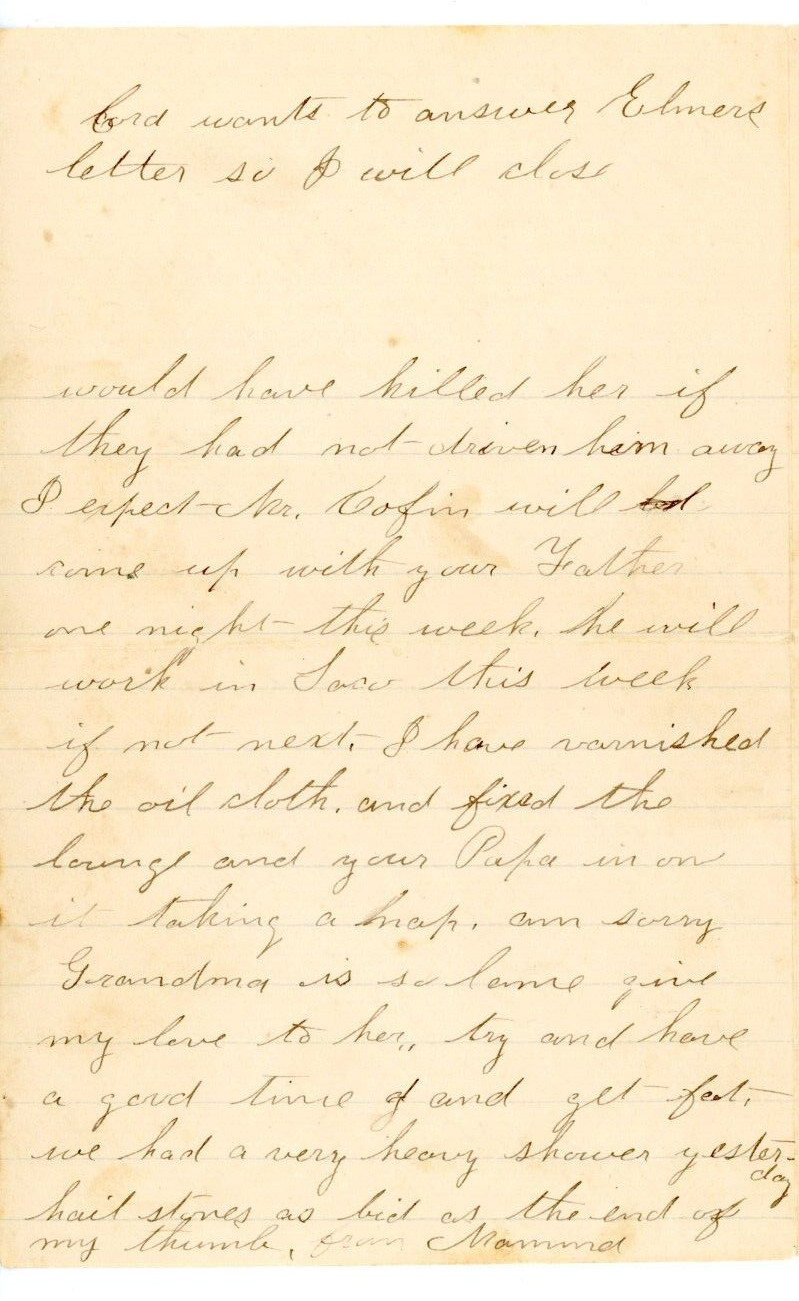 Cord wants to answer Elmers
letter so I will close
would have killed her if
they had not driven him away
I expect Mr. Cofin will
come up with your Father
one night this week. he will
work in Saco this week
if not next. I have varnished
the oil cloth. and fixed the
lounge and your Papa in on
it taking a nap. am sorry
Grandma is so lame give
my love to her,, try and have
a good time and get fat.
we had a very heavy shower yester-
day
hail stones as bid as the end of
my thumb, from Mamma